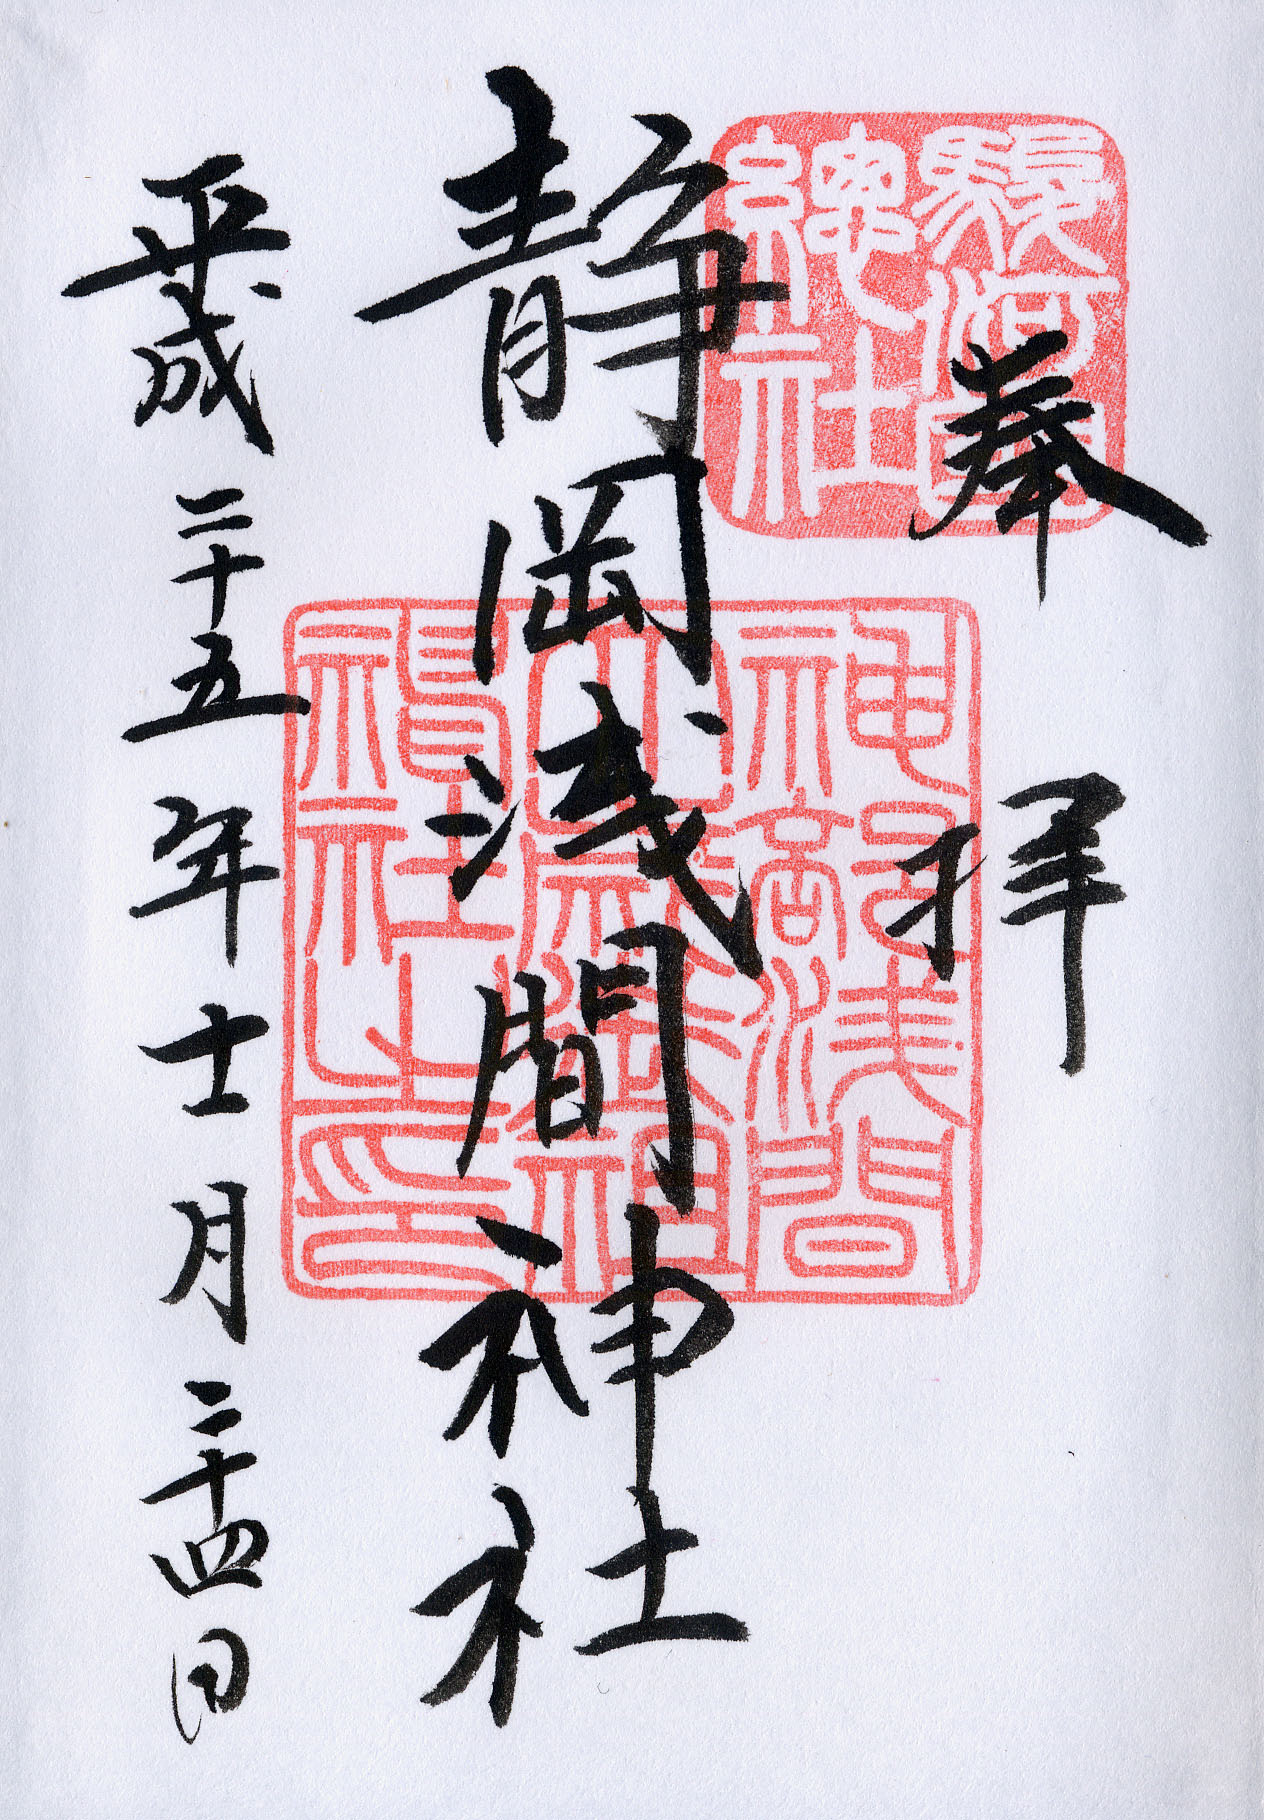 奉拝
駿河國
總社
静岡浅間神社
神部浅間
大歳御祖
神社之印
平成二十五年十一月二十四日